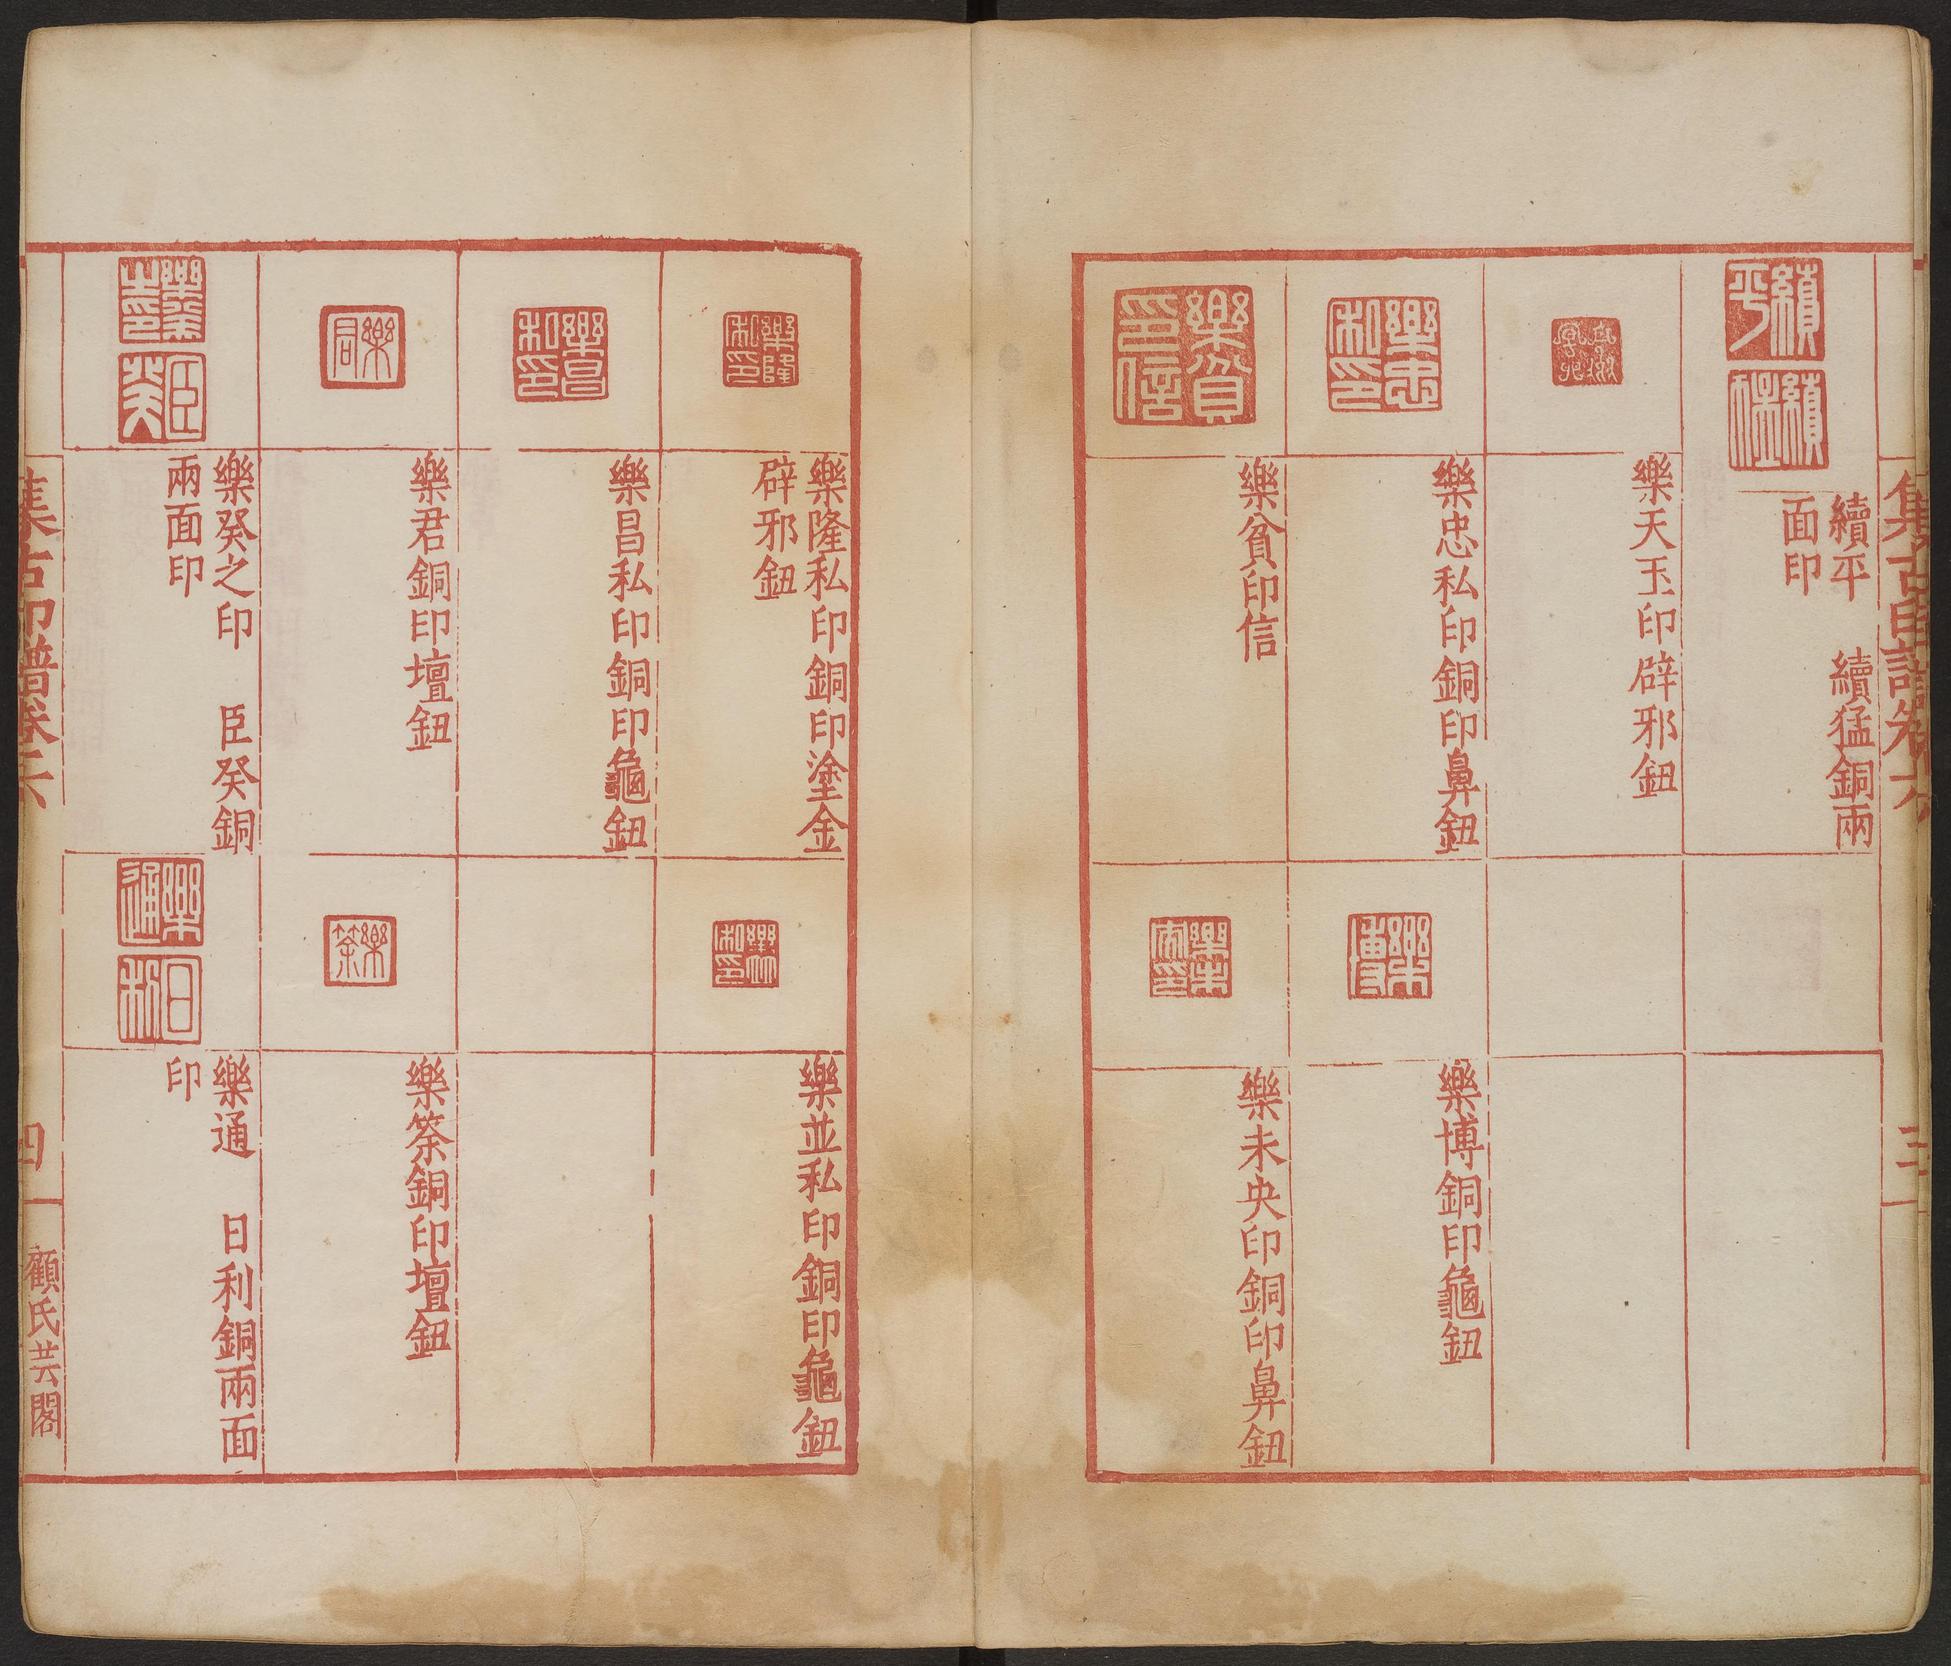 集古印譜卷六
三
續平　續猛銅兩
面印
樂天玉印辟邪鈕
樂忠私印銅印鼻鈕
樂博銅印龜鈕
樂貧印信
樂未央印銅印鼻鈕
樂隆私印銅印塗金
辟邪鈕
樂並私印銅印龜鈕
樂昌私印銅印龜鈕
樂君銅印壇鈕
樂筡銅印壇鈕
樂癸之印　臣癸銅
兩面印
樂通　日利銅兩面
印
集古印譜卷六
四
顧氏芸閣